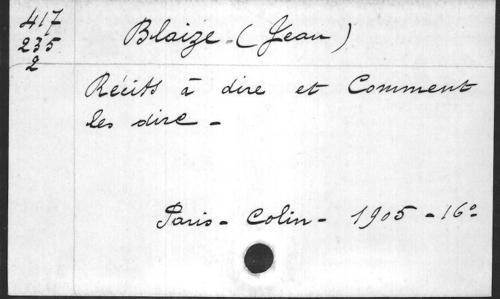 417
235
2
Blaize - (Jean)
Récits à dire et Comment
les dire -
Paris - Colin - 1905 - 16º